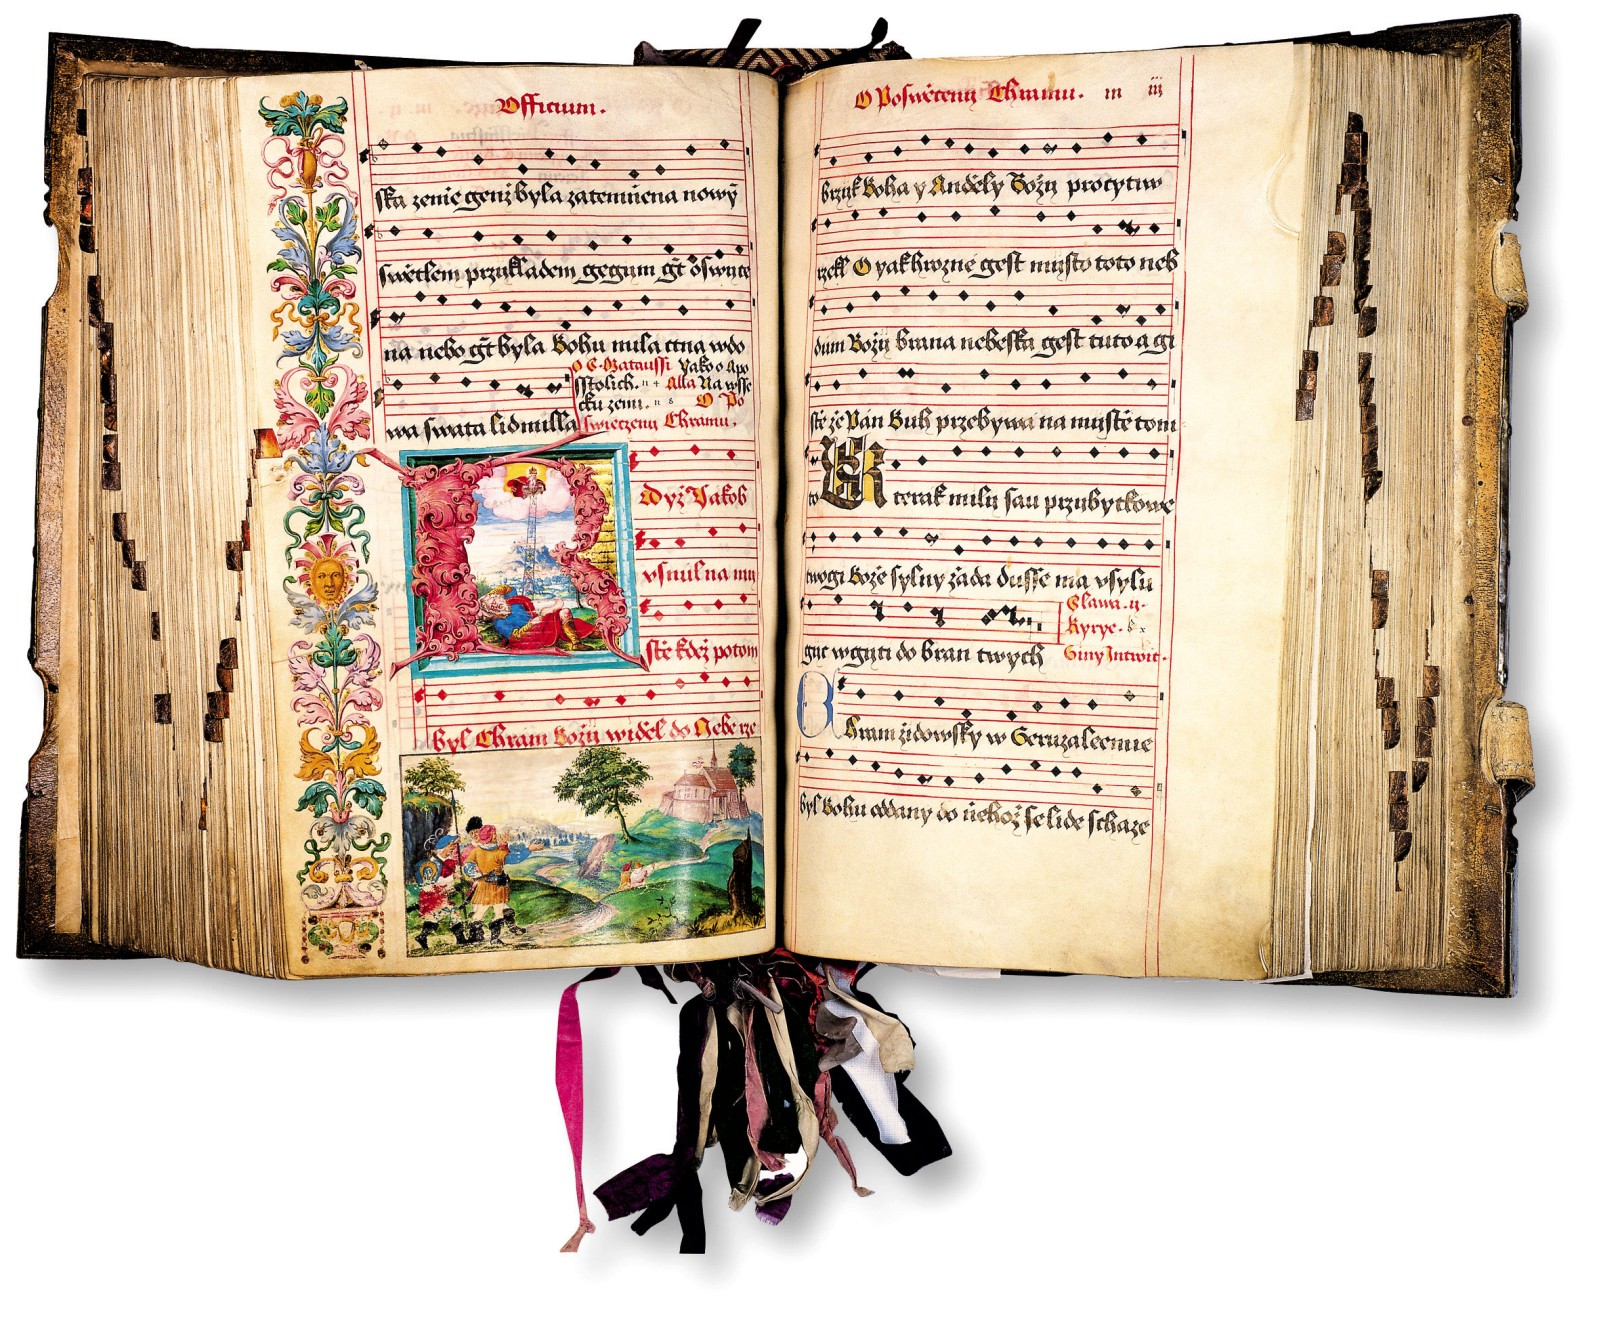 Officium.
ska zemie genž byla zatemniena nowy
swětlem przykladem gegum gt oswice
na nebo gt byla Bohu mila ctna wdo
O S. Mataussi Yako o Apo
sstolich. Alla Na wsse
cku zemi. O Po
swieczeny Chramu.
wa swata Lidmilla
Gdyž Yakob
vsnul na my
stě kdež potom
byl Chram Božy widěl do Nebe rze
O Poswěceny Chramu. m iij
brzyk Boha y Anděly Božy procytiw
rzekl O yak hrozne gest mysto toto neb
dum Božy brana nebeska gest tuto a gi
stě že Pan Buh przebywa na mystě tom
to Kterak milij sau przybytkowe
twogi Bože sylny žada dusse ma vsylu
Slawa. ij.
Kyrye.
giic wgyti do bran twych
Giny Introit.
Chram židowsky w Geruzaleemie
byl Bohu oddany do niehož se lide schaze